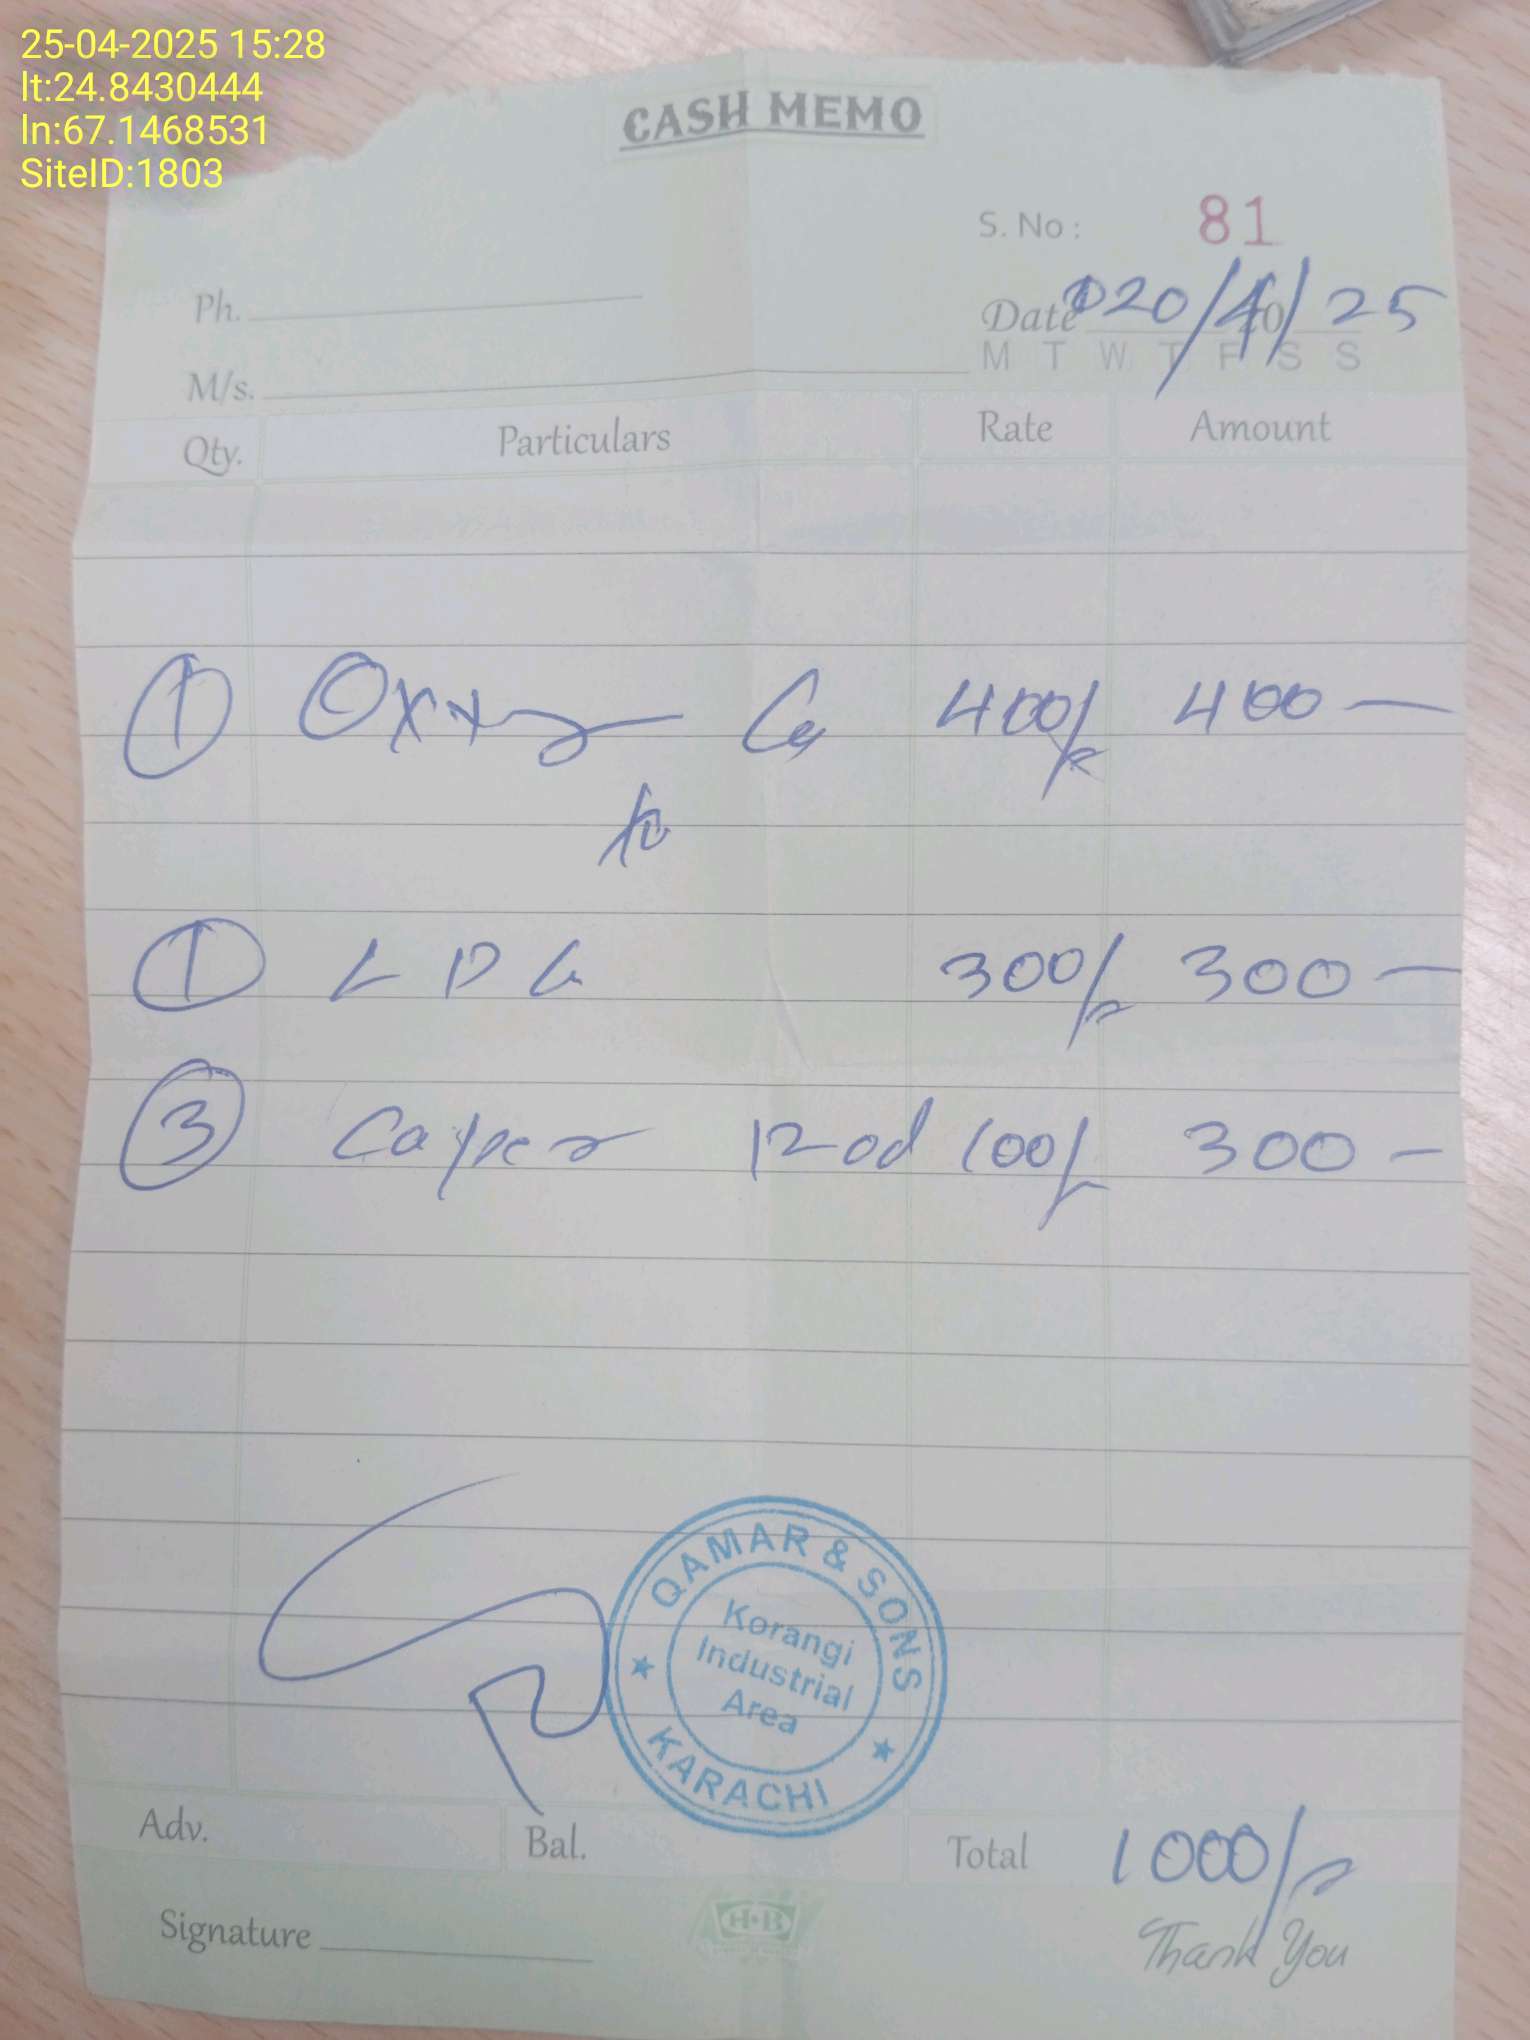 25-04-2025 15:28
lt:24.8430444
ln:67.1468531
SiteID:1803
CASH MEMO
S. No : 81
Ph.
Date 20/4/25
20
M T W T F S S
M/s.
Qty. Particulars Rate Amount
1 400/- 400 —
1 L P G 300/- 300 —
3 Rod 100/- 300 —
QAMAR & SONS
Korangi
Industrial
Area
KARACHI
Adv. Bal. Total 1000/-
H·B
Signature
Thank You